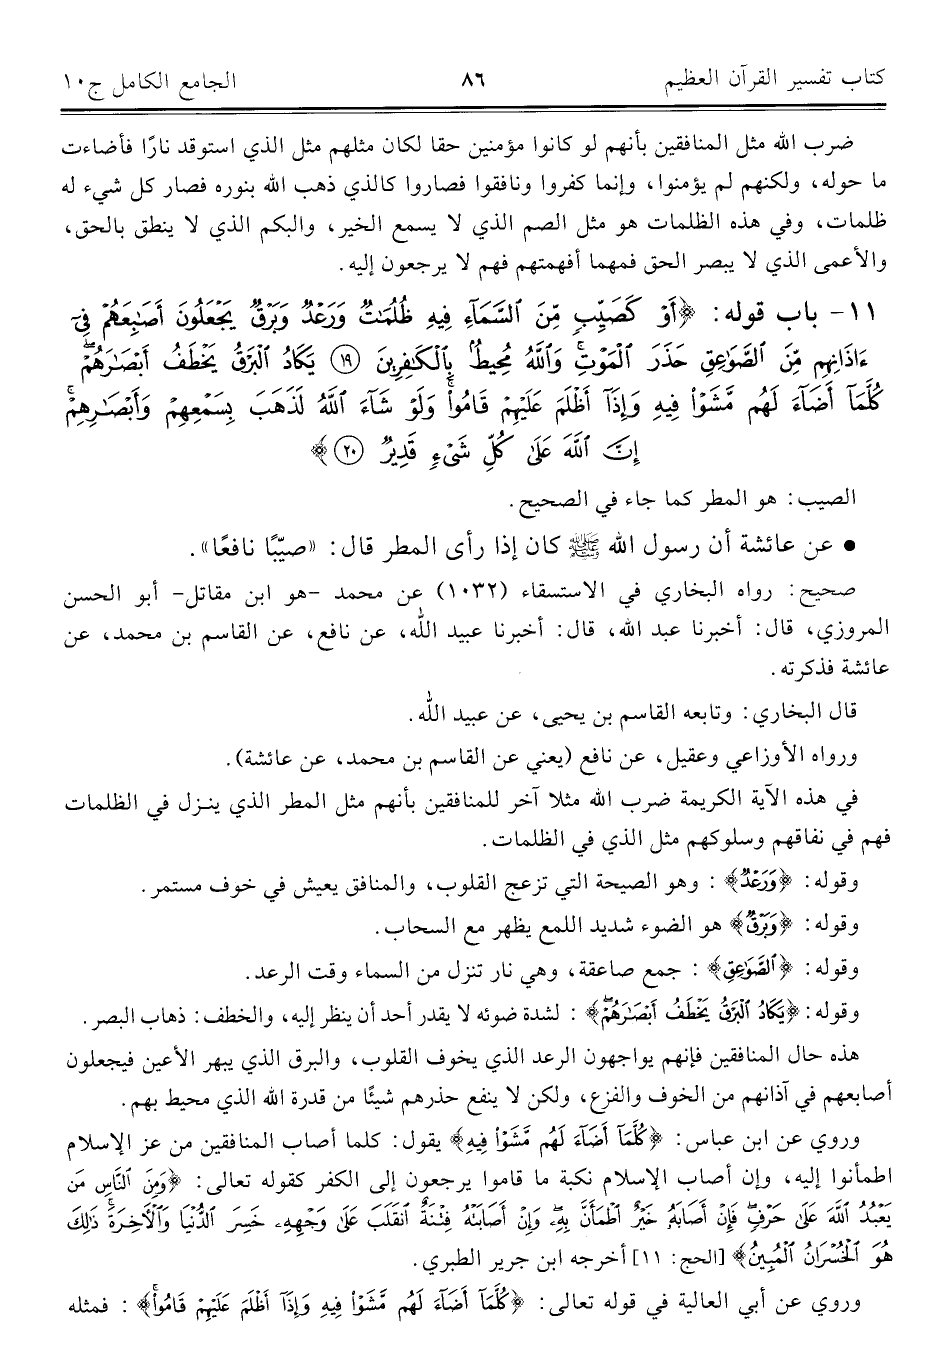 كتاب تفسير القرآن العظيم ٨٦ الجامع الكامل ج١٠
ضرب الله مثل المنافقين بأنهم لو كانوا مؤمنين حقا لكان مثلهم مثل الذي استوقد نارًا فأضاءت
ما حوله، ولكنهم لم يؤمنوا، وإنما كفروا ونافقوا فصاروا كالذي ذهب الله بنوره فصار كل شيء له
ظلمات، وفي هذه الظلمات هو مثل الصم الذي لا يسمع الخير، والبكم الذي لا ينطق بالحق،
والأعمى الذي لا يبصر الحق فمهما أفهمتهم فهم لا يرجعون إليه.
١١- باب قوله: ﴿أَوْ كَصَيِّبٍ مِّنَ ٱلسَّمَآءِ فِيهِ ظُلُمَٰتٌ وَرَعْدٌ وَبَرْقٌ يَجْعَلُونَ أَصَٰبِعَهُمْ فِىٓ
ءَاذَانِهِم مِّنَ ٱلصَّوَٰعِقِ حَذَرَ ٱلْمَوْتِ ۚ وَٱللَّهُ مُحِيطٌۢ بِٱلْكَٰفِرِينَ ۝١٩ يَكَادُ ٱلْبَرْقُ يَخْطَفُ أَبْصَٰرَهُمْ ۖ
كُلَّمَآ أَضَآءَ لَهُم مَّشَوْا۟ فِيهِ وَإِذَآ أَظْلَمَ عَلَيْهِمْ قَامُوا۟ ۚ وَلَوْ شَآءَ ٱللَّهُ لَذَهَبَ بِسَمْعِهِمْ وَأَبْصَٰرِهِمْ ۚ
إِنَّ ٱللَّهَ عَلَىٰ كُلِّ شَىْءٍ قَدِيرٌ ۝٢٠﴾
الصيب: هو المطر كما جاء في الصحيح.
● عن عائشة أن رسول الله ﷺ كان إذا رأى المطر قال: «صيّبًا نافعًا».
صحيح: رواه البخاري في الاستسقاء (١٠٣٢) عن محمد -هو ابن مقاتل- أبو الحسن
المروزي، قال: أخبرنا عبد الله، قال: أخبرنا عبيد الله، عن نافع، عن القاسم بن محمد، عن
عائشة فذكرته.
قال البخاري: وتابعه القاسم بن يحيى، عن عبيد الله.
ورواه الأوزاعي وعقيل، عن نافع (يعني عن القاسم بن محمد، عن عائشة).
في هذه الآية الكريمة ضرب الله مثلا آخر للمنافقين بأنهم مثل المطر الذي ينـزل في الظلمات
فهم في نفاقهم وسلوكهم مثل الذي في الظلمات.
وقوله: ﴿وَرَعْدٌ﴾ : وهو الصيحة التي تزعج القلوب، والمنافق يعيش في خوف مستمر.
وقوله: ﴿وَبَرْقٌ﴾ هو الضوء شديد اللمع يظهر مع السحاب.
وقوله: ﴿ٱلصَّوَٰعِقِ﴾ : جمع صاعقة، وهي نار تنزل من السماء وقت الرعد.
وقوله: ﴿يَكَادُ ٱلْبَرْقُ يَخْطَفُ أَبْصَٰرَهُمْ ۖ﴾ : لشدة ضوئه لا يقدر أحد أن ينظر إليه، والخطف: ذهاب البصر.
هذه حال المنافقين فإنهم يواجهون الرعد الذي يخوف القلوب، والبرق الذي يبهر الأعين فيجعلون
أصابعهم في آذانهم من الخوف والفزع، ولكن لا ينفع حذرهم شيئًا من قدرة الله الذي محيط بهم.
وروي عن ابن عباس: ﴿كُلَّمَآ أَضَآءَ لَهُم مَّشَوْا۟ فِيهِ﴾ يقول: كلما أصاب المنافقين من عز الإسلام
اطمأنوا إليه، وإن أصاب الإسلام نكبة ما قاموا يرجعون إلى الكفر كقوله تعالى: ﴿وَمِنَ ٱلنَّاسِ مَن
يَعْبُدُ ٱللَّهَ عَلَىٰ حَرْفٍ ۖ فَإِنْ أَصَابَهُۥ خَيْرٌ ٱطْمَأَنَّ بِهِۦ ۖ وَإِنْ أَصَابَتْهُ فِتْنَةٌ ٱنقَلَبَ عَلَىٰ وَجْهِهِۦ خَسِرَ ٱلدُّنْيَا وَٱلْءَاخِرَةَ ۚ ذَٰلِكَ
هُوَ ٱلْخُسْرَانُ ٱلْمُبِينُ﴾ [الحج: ١١] أخرجه ابن جرير الطبري.
وروي عن أبي العالية في قوله تعالى: ﴿كُلَّمَآ أَضَآءَ لَهُم مَّشَوْا۟ فِيهِ وَإِذَآ أَظْلَمَ عَلَيْهِمْ قَامُوا۟ ۚ﴾ : فمثله